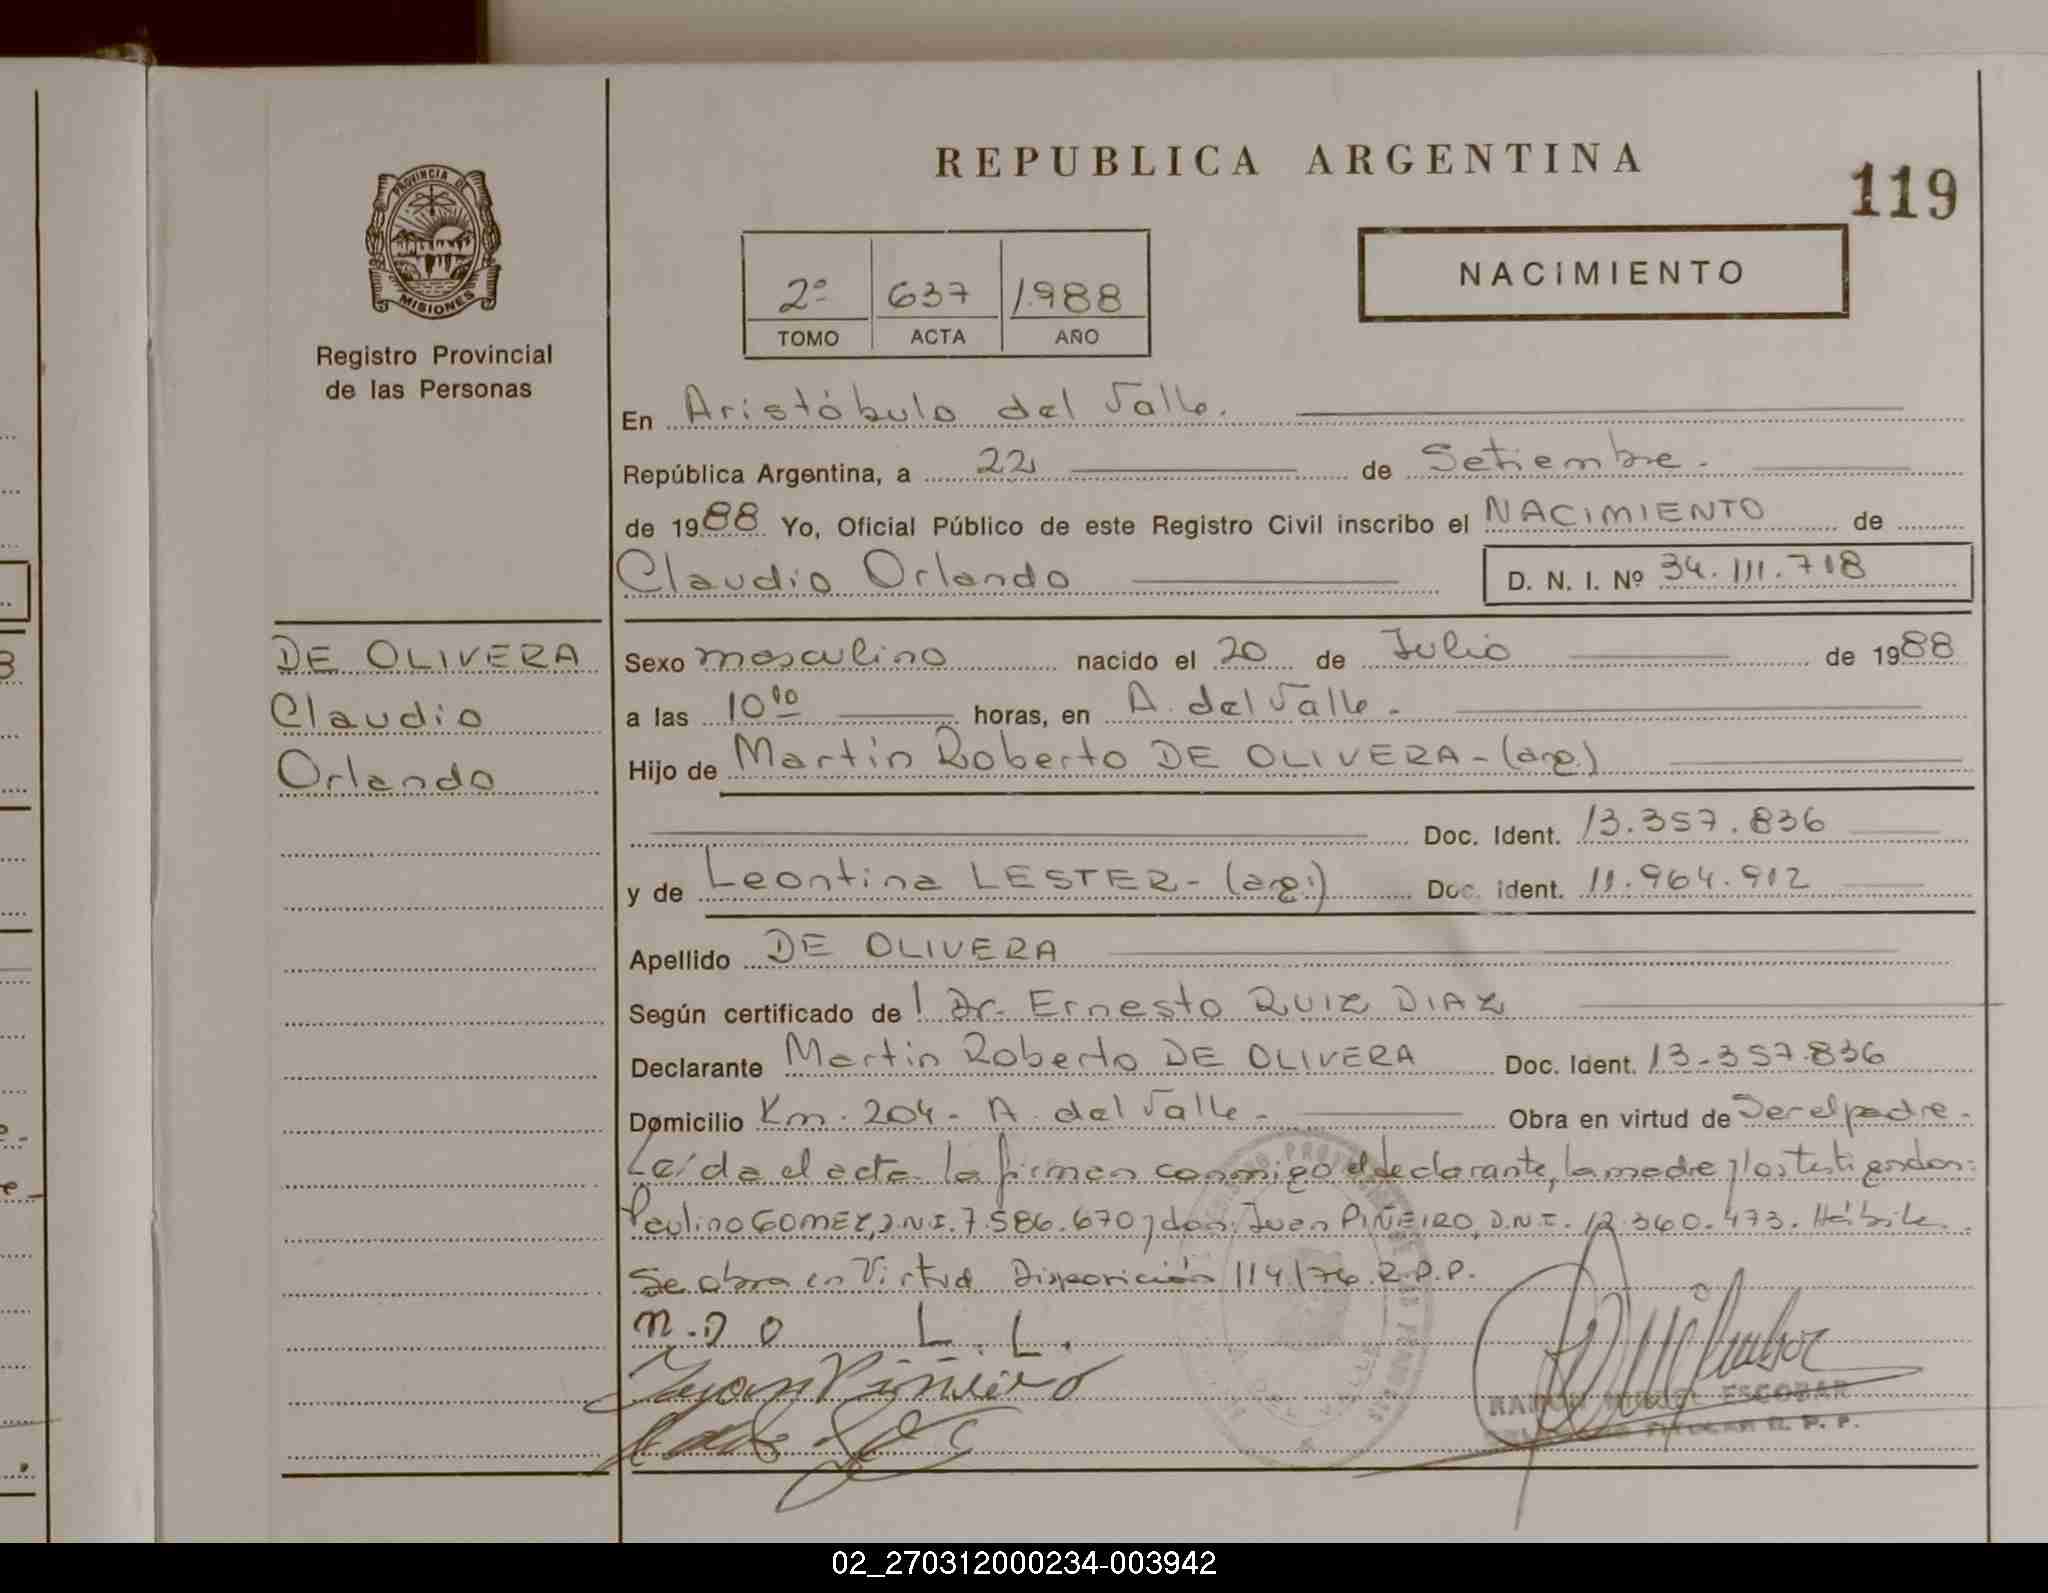 REPUBLICA ARGENTINA
119
PROVINCIA DE
MISIONES
Registro Provincial
de las Personas
2º 637 1.988
TOMO ACTA AÑO
NACIMIENTO
En Aristóbulo del Valle.
República Argentina, a 22 de Setiembre.
de 1988 Yo, Oficial Público de este Registro Civil inscribo el NACIMIENTO de
Claudio Orlando D. N. I. Nº 34.111.718
DE OLIVERA
Claudio
Orlando
Sexo masculino nacido el 20 de Julio de 1988
a las 10¹⁰ horas, en A. del Valle.
Hijo de Martin Roberto DE OLIVERA - (arg.)
Doc. Ident. 13.357.836
y de Leontina LESTER - (arg.) Doc. Ident. 11.964.912
Apellido DE OLIVERA
Según certificado del Dr. Ernesto RUIZ DIAZ
Declarante Martin Roberto DE OLIVERA Doc. Ident. 13.357.836
Domicilio Km. 204 - A. del Valle - Obra en virtud de Ser el padre.
Leída el acta la firman conmigo el declarante, la madre y los testigos don:
Paulino GOMEZ, D.N.I. 7.586.670 y don: Juan PIÑEIRO, D.N.I. 12.360.473. Hábile.
Se obra en Virtud Disposición 114/76 R.P.P.
M.D O L. L.
Juan Piñeiro
RAMON MIGUEL ESCOBAR
TITULAR R. P. P.
02_270312000234-003942